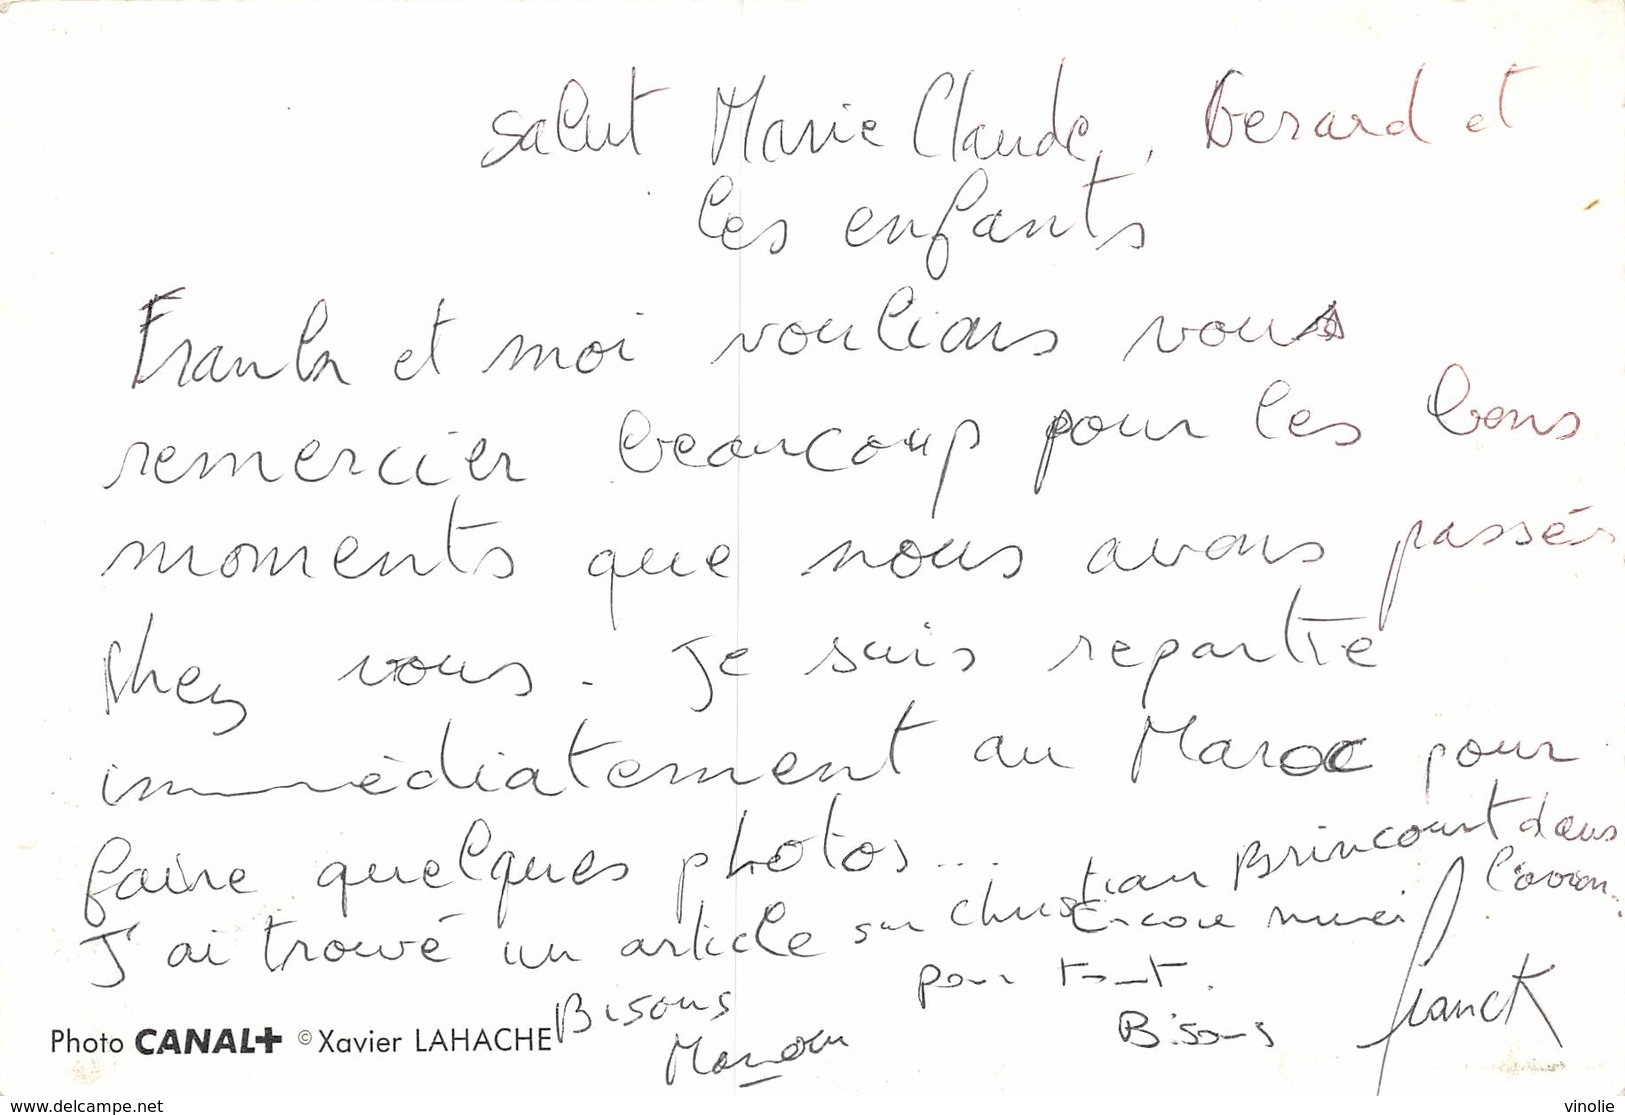 Salut Marie Claude, Gerard et
les enfants
Franck et moi voulions vous
remercier beaucoup pour les bons
moments que nous avons passés
chez vous. Je suis repartie
immédiatement au Maroc pour
faire quelques photos...
J'ai trouvé un article sur Christian Brincourt dans
l'avion.
Bisous
Manou
Encore merci
pour tout.
Bisous
Franck
Photo CANAL+ © Xavier LAHACHE
www.delcampe.net
vinolie